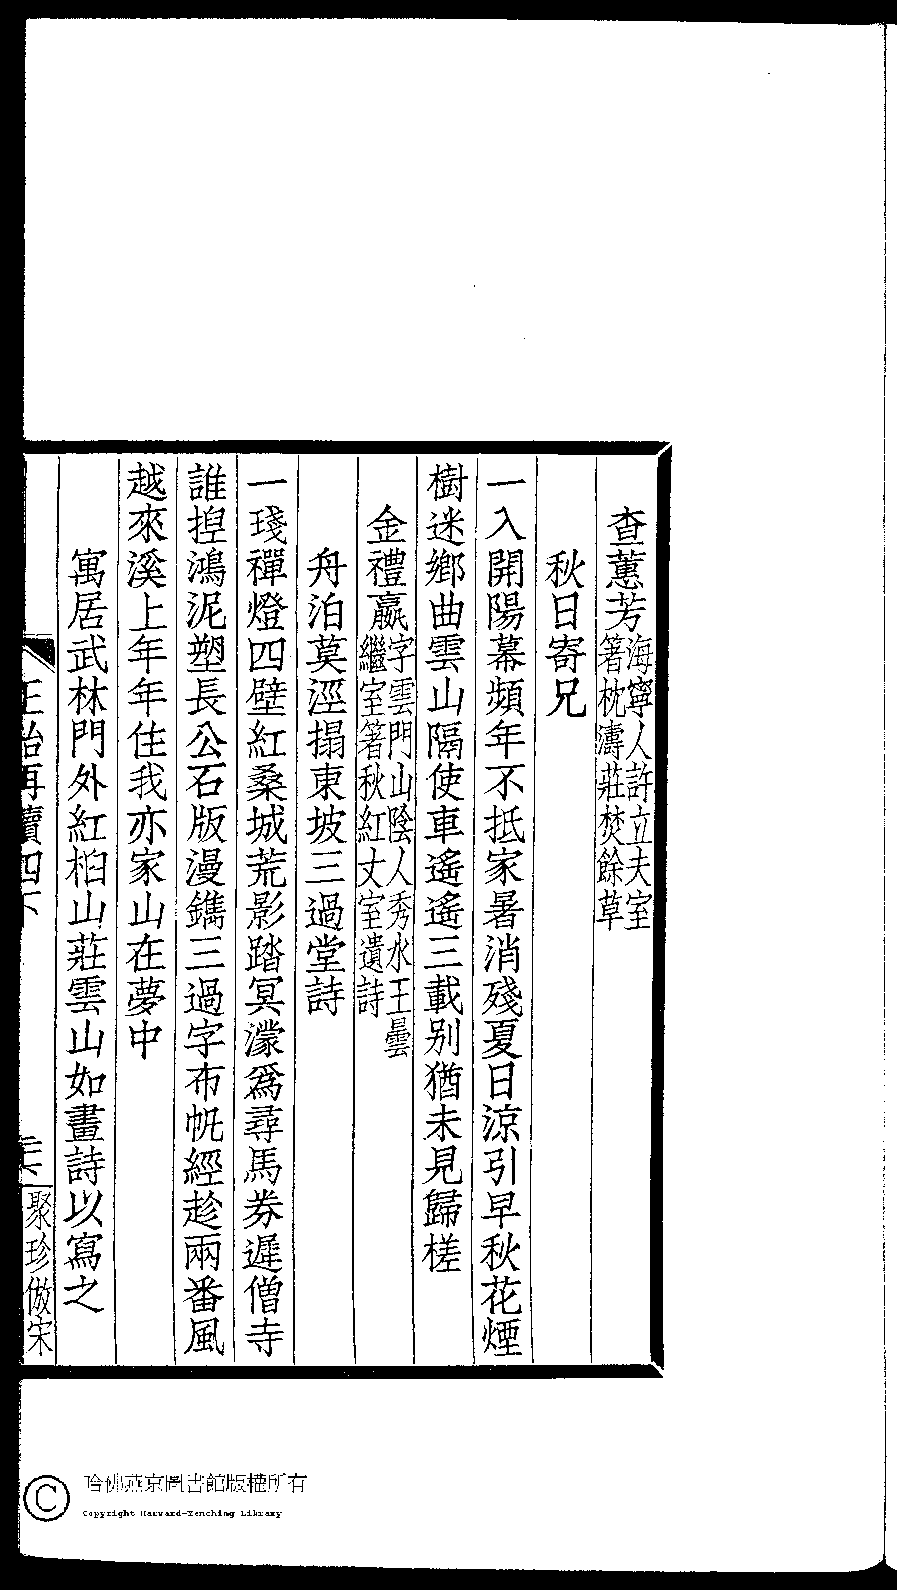 查蕙芳海寧人許立夫室著枕濤莊焚餘草
秋日寄兄
一入開陽幕頻年不抵家暑消殘夏日涼引早秋花煙
樹迷鄉曲雲山隔使車遙遙三載別猶未見歸槎
金禮嬴字雲門山陰人秀水王曇繼室著秋紅丈室遺詩
舟泊莫湮搨東坡三過堂詩
一琖禪燈四壁紅桑城荒影踏冥濛爲尋馬券遲僧寺
誰揑鴻泥塑長公石版漫鐫三過字布帆經趁兩番風
越來溪上年年住我亦家山在夢中
寓居武林門外紅桕山莊雲山如畫詩以寫之
正始再續四下
聚珍倣宋
哈佛燕京圖書館版權所有
Copyright Harvard-Yenching Library